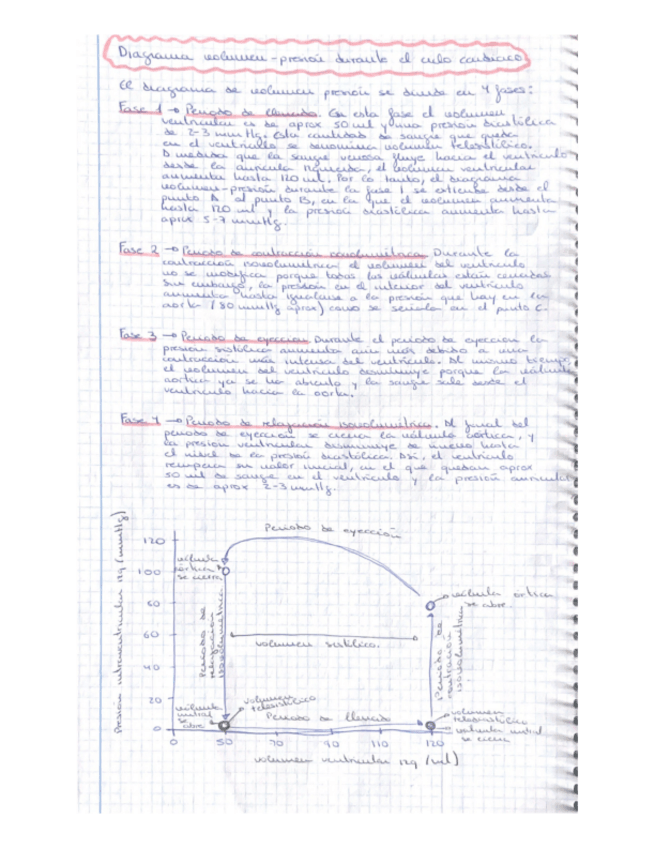 Diagrama volumen-presión durante el ciclo cardiaco
El diagrama de volumen presión se divide en 4 fases:
Fase 1 → Periodo de llenado. En esta fase el volumen
ventricular es de aprox 50 ml y una presión diastólica
de 2-3 mmHg. Esta cantidad de sangre que queda
en el ventrículo se denomina volumen telesistólico.
A medida que la sangre venosa fluye hacia el ventrículo
desde la aurícula izquierda, el volumen ventricular
aumenta hasta 120 ml. Por lo tanto, el diagrama
volumen-presión durante la fase 1 se extiende desde el
punto A al punto B, en la que el volumen aumenta
hasta 120 ml y la presión diastólica aumenta hasta
aprox 5-7 mmHg.
Fase 2 → Periodo de contracción isovolumétrica. Durante la
contracción isovolumétrica el volumen del ventrículo
no se modifica porque todas las válvulas están cerradas.
Sin embargo, la presión en el interior del ventrículo
aumenta hasta igualarse a la presión que hay en la
aorta (80 mmHg aprox) como se señala en el punto C.
Fase 3 → Periodo de eyección. Durante el periodo de eyección la
presión sistólica aumenta aún más debido a una
contracción más intensa del ventrículo. Al mismo tiempo,
el volumen del ventrículo disminuye porque la válvula
aórtica ya se ha abierto y la sangre sale desde el
ventrículo hacia la aorta.
Fase 4 → Periodo de relajación isovolumétrica. Al final del
periodo de eyección se cierra la válvula aórtica, y
la presión ventricular disminuye de nuevo hasta
el nivel de la presión diastólica. Así, el ventrículo
recupera su valor inicial, en el que quedan aprox
50 ml de sangre en el ventrículo y la presión auricular
es de aprox 2-3 mmHg.
Presión intraventricular izq (mmHg)
Periodo de eyección
120
100
80
60
40
20
0
válvula
aórtica
se cierra
Periodo de
relajación
isovolumétrica
volumen sistólico.
válvula aórtica
se abre.
Periodo de
contracción
isovolumétrica
válvula
mitral
se
abre
volumen
telesistólico
Periodo de llenado
volumen
telediastólico
válvula mitral
se cierra
0 50 70 90 110 120
volumen ventricular izq (ml)